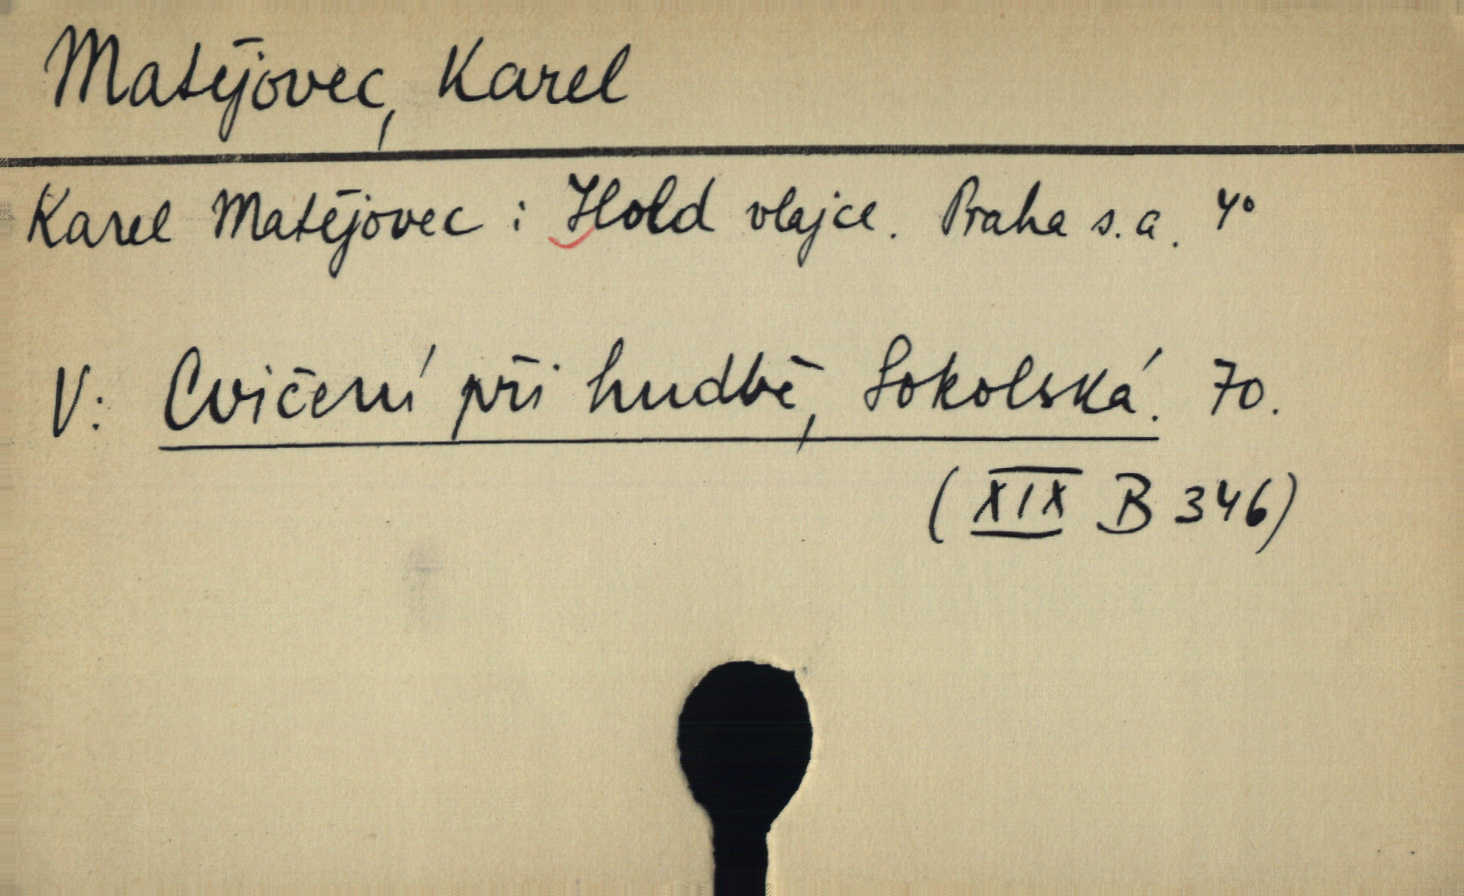 Matějovec, Karel
Karel Matějovec: Hold vlajce. Praha s.a. 4°
V: Cvičení při hudbě, Sokolská. 70.
(XIX B 346)